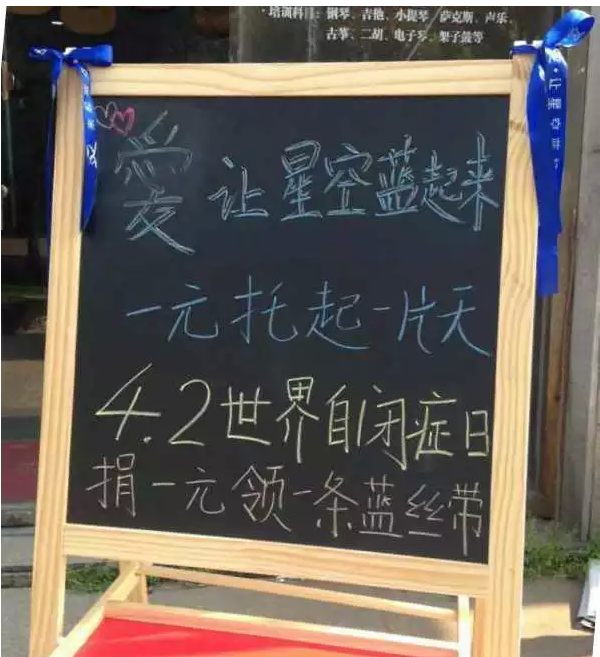 ·培训科目：钢琴、吉他、小提琴、萨克斯、声乐、
古筝、二胡、电子琴、架子鼓等
爱 让星空蓝起来
一元托起一片天
4.2世界自闭症日
捐一元领一条蓝丝带